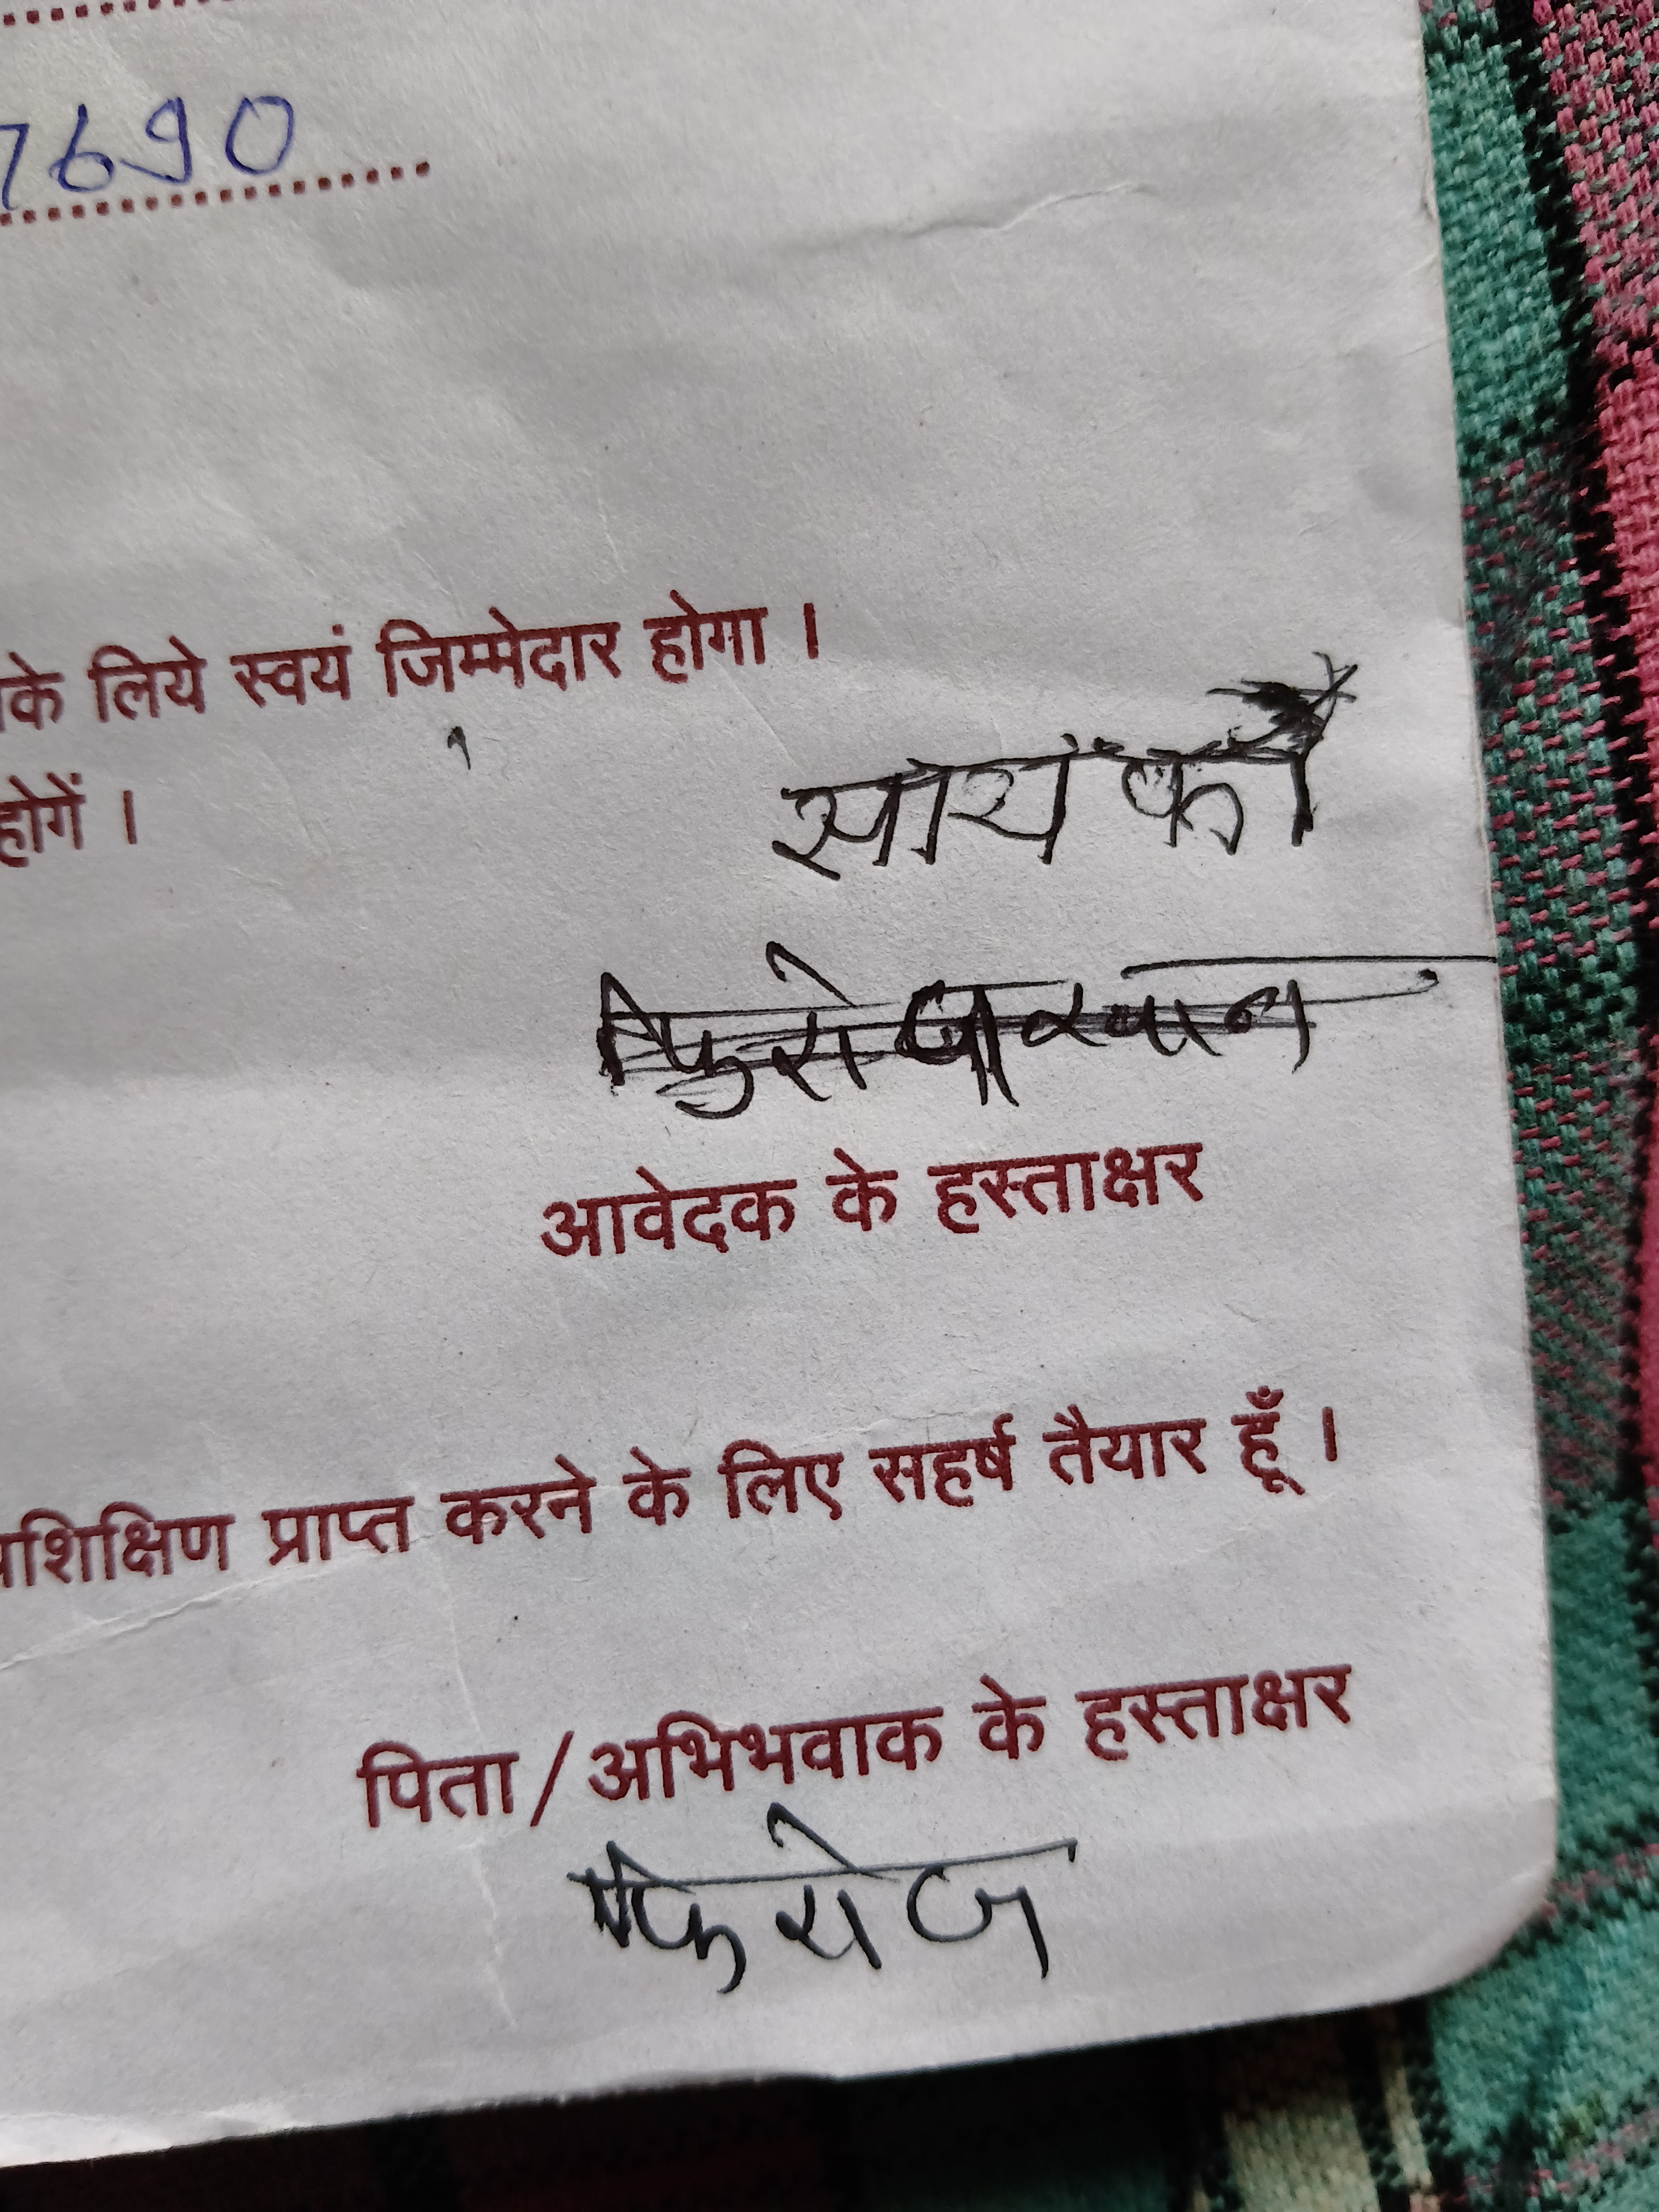 7690
के लिये स्वयं जिम्मेदार होगा ।
होगें ।
फिरोज खान
आवेदक के हस्ताक्षर
प्रशिक्षिण प्राप्त करने के लिए सहर्ष तैयार हूँ ।
पिता/अभिभवाक के हस्ताक्षर
फिरोज